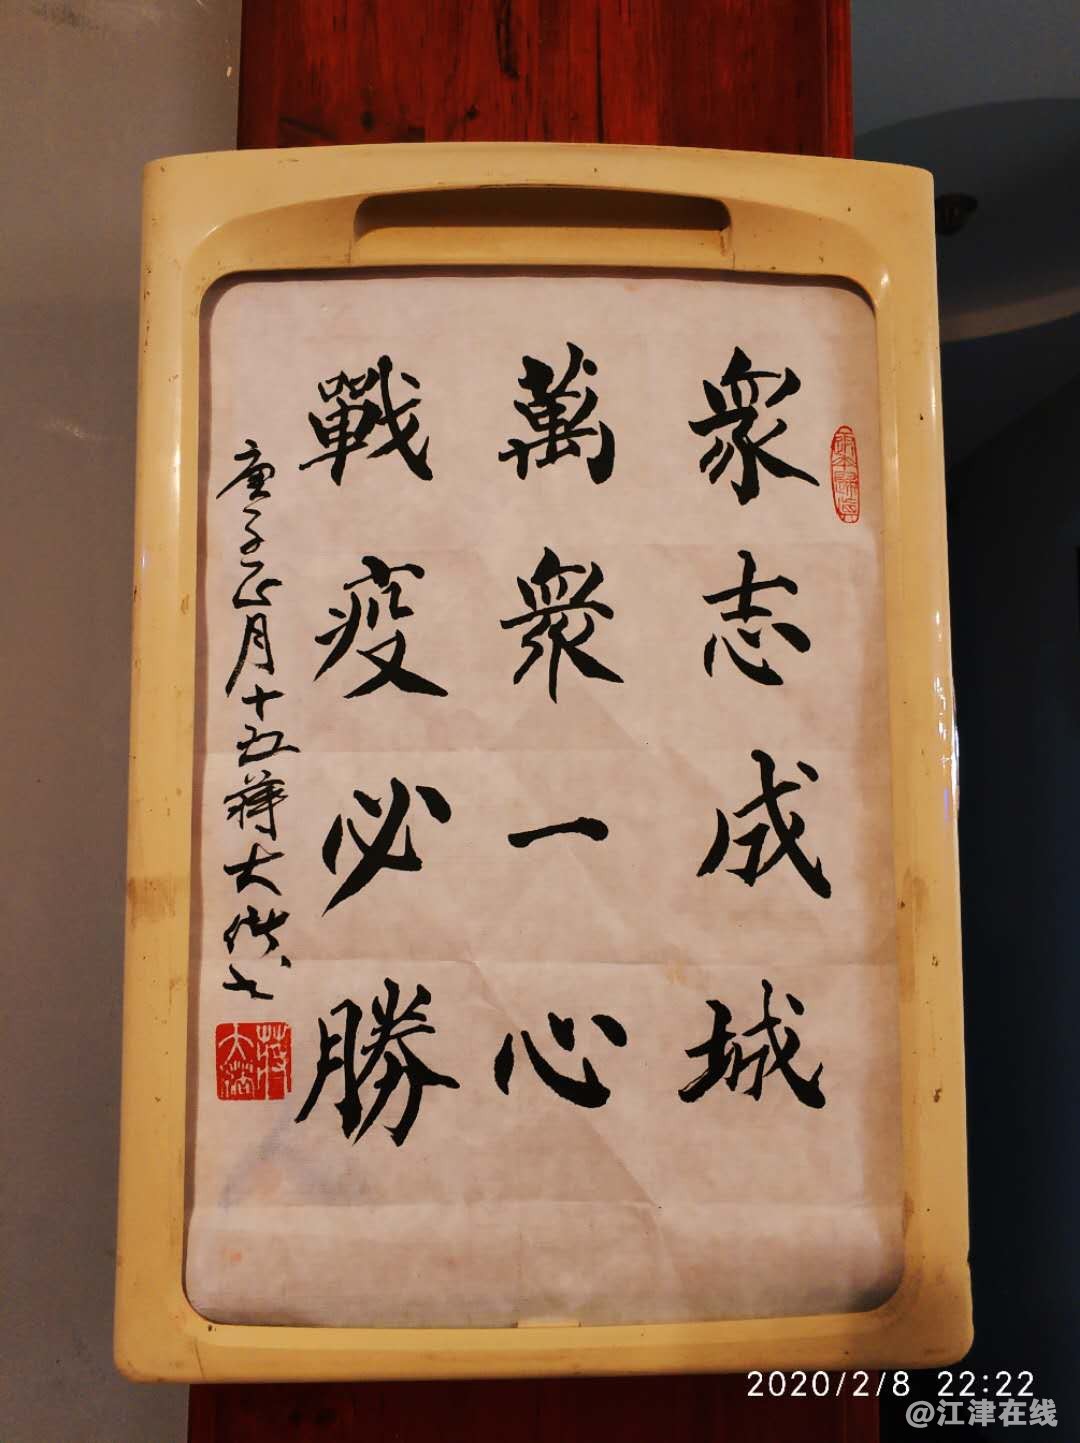 眾志成城
萬眾一心
戰疫必勝
庚子正月十五蔣大
2020/2/8 22:22
@江津在线